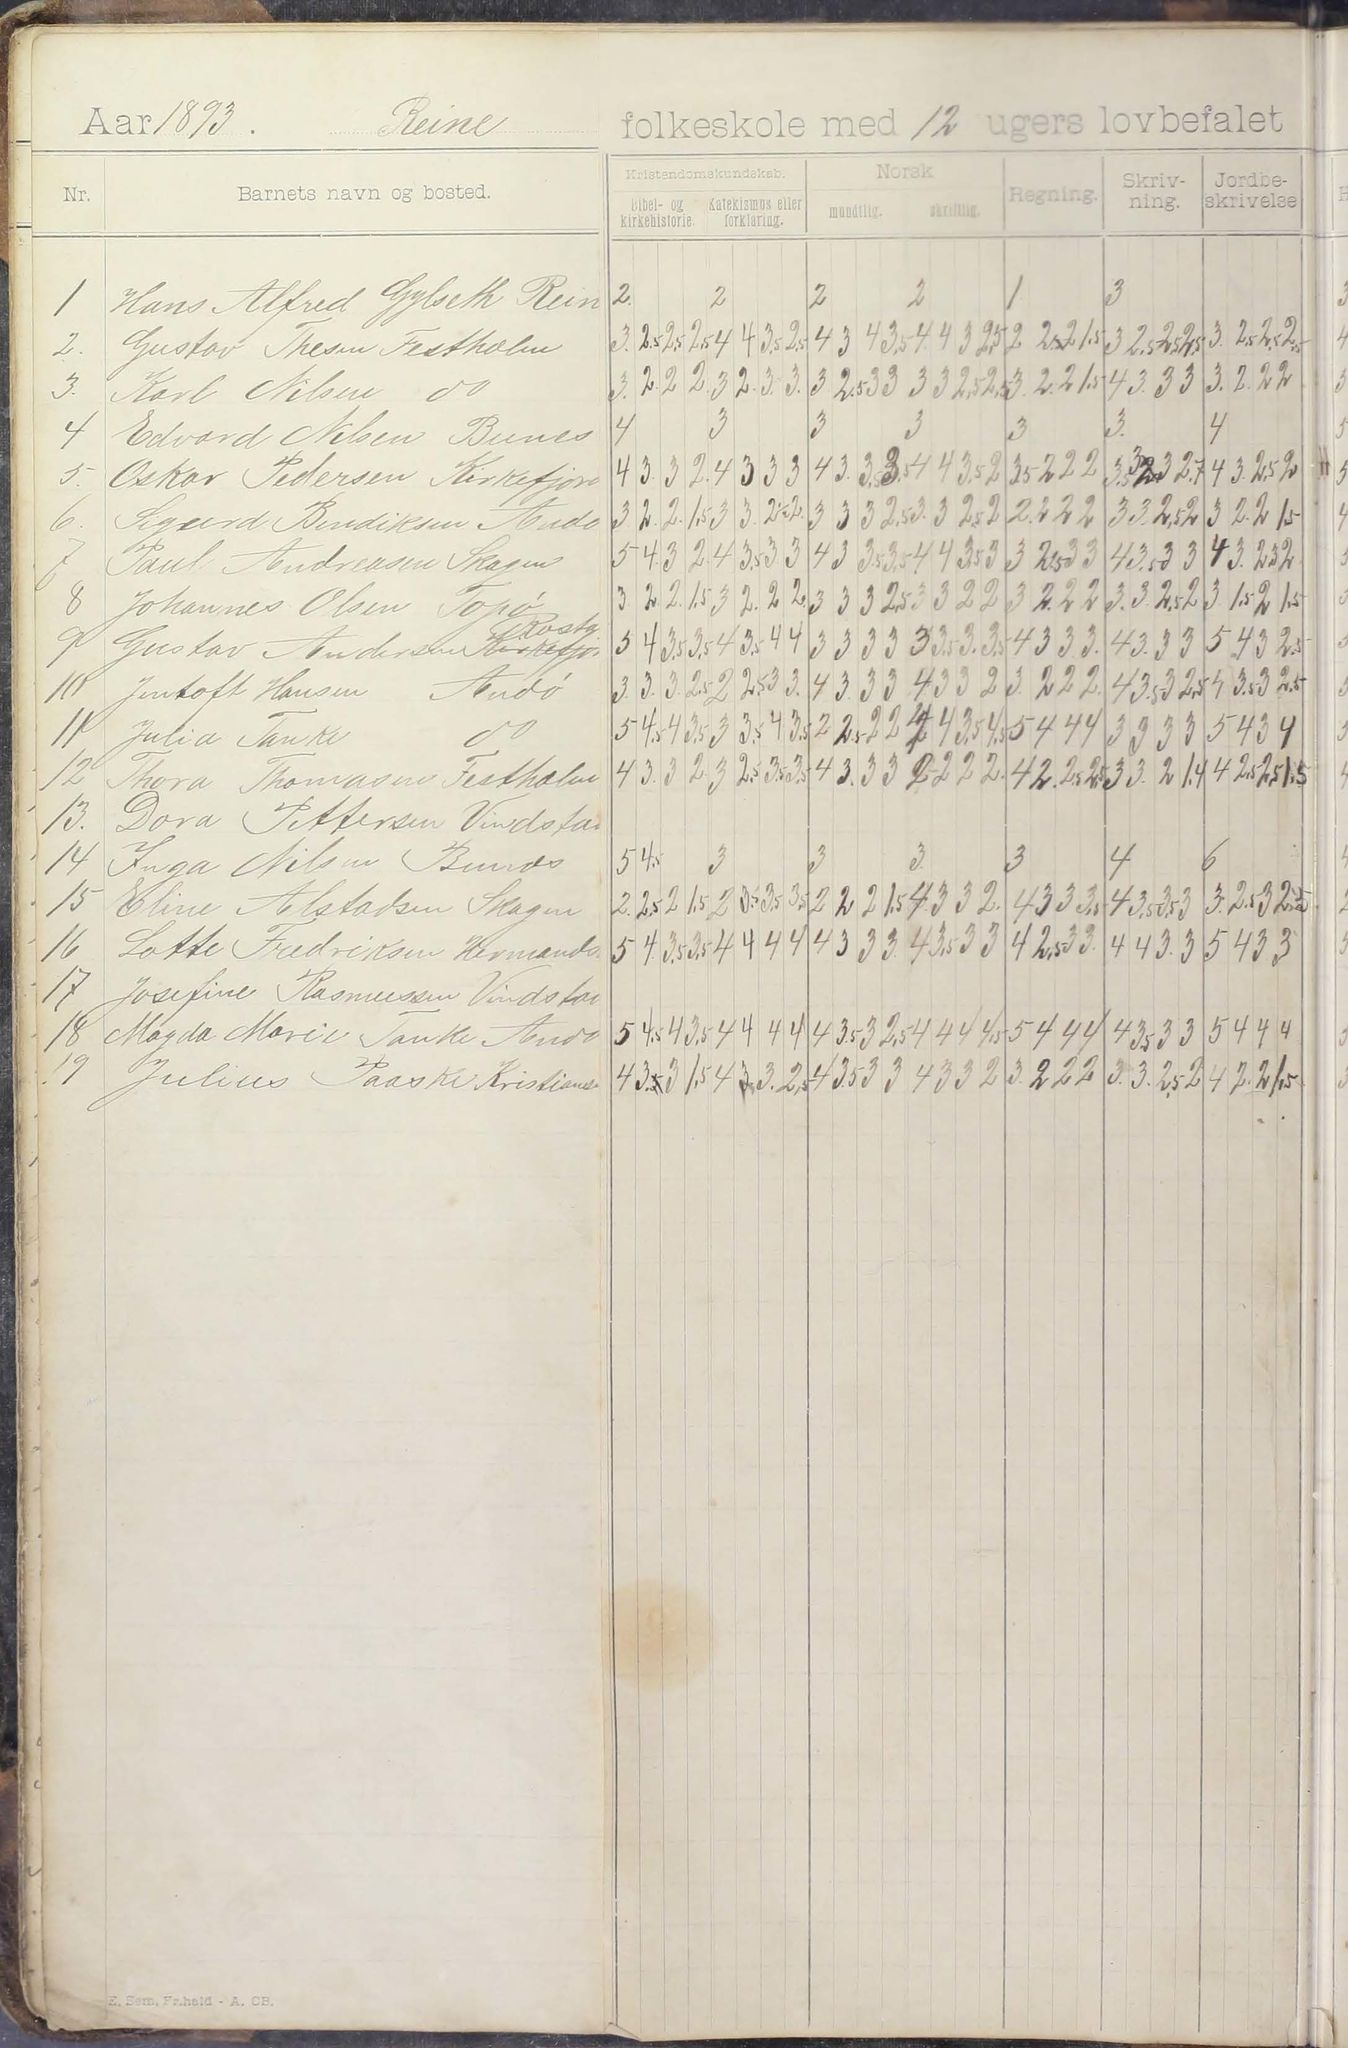 Aar 1893. Reine folkeskole med 12 ugers lovbefalet
Nr. Barnets navn og bosted. Kristendomskundskab. Norsk Regning. Skriv-ning. Jordbe-skrivelse
Bibel- og kirkehistorie. Katekismus eller forklaring. mundtlig. skriftlig.
1 Hans Alfred Gylseth Rein 2. 2 2 2 1 3
2. Gustav Thesen Festhælen 3. 2.5 2,5 2,5 4 4 3,5 2,5 4 3 4 3,5 4. 4 3 2,5 2 2,5 2 1.5 3 2,5 2,5 2,5 3. 2,5 2,5 2,5
3. Karl Nilsen do 3. 2. 2 2. 3 2. 3. 3. 3 2.5 3 3 3 3 2,5 2,5 3. 2. 2 1.5 4 3. 3 3 3. 2. 2 2
4 Edvard Nilsen Bunes 4 3 3 3 3 3. 4
5. Oskar Pedersen Kirkefjord 4 3. 3 2. 4 3 3 3 4 3. 3,5 3,5 4 4 3,5 2 3,5 2 2 2
6. Sigurd Bendiksen Andø 3 2. 2. 1.5 3 3. 2.5 2. 3 3 3 2,5 3. 3 2,5 2 2. 2 2 2 3 3. 2,5 2 3 2. 2 1.5
7 Paul Andreasen Skagen 5 4. 3 2. 4 3,5 3 3 4 3 3.5 3,5 4 4 3,5 3 3 2,5 3 3 4 3,5 3 3
8 Johannes Olsen Topø 3 2. 2. 1.5 3 2. 2 2. 3 3 3 2,5 3 3 2 2 3 2. 2 2 3. 3. 2,5 2 3 1,5 2 1,5
9 Gustav Andersen Kirkefjor 5 4 3,5 3,5 4 3,5 4 4 3 3 3 3 3 3,5 3. 3,5 4 3 3 3. 4 3. 3 3 5 4 3 2.5
10 Jentoft Hansen Andø 3. 3. 3. 2.5 2 2.5 3 3. 4 3. 3 3 4 3 3 2 3. 2 2 2. 4 3.5 3 2,5 4 3.5 3 2.5
11 Julia Tanke do 5 4,5 4 3,5 3 3,5 4 3,5 2 2,5 2 2 4 4 3,5 4,5 5 4 4 4 3 3 3 3 5 4 3 4
12 Thora Thomasen Festhælen 4 3. 3 2. 3 2,5 3,5 3,5 4 3. 3 3 2 2 2 2. 4 2. 2,5 2,5 3 3. 2 1.4 4 2,5 2,5 1.5
13. Dora Pettersen Vindstad
14 Inga Nilsen Bunes 5 4,5 3 3 3. 3 4 6
15 Eline Alstadsen Skagen 2. 2,5 2 1,5 2 3,5 3,5 3,5 2 2 2 1.5 4 3 3 2. 4 3 3 3,5 4 3,5 3,5 3 3. 2.5 3 2.5
16 Lotte Fredriksen Hermands. 5 4 3,5 3,5 4 4 4 4 4 3 3 3. 4 3,5 3 3 4 2,5 3 3. 4 4 3. 3 5 4 3 3
17 Josefine Rasmussen Vindstad
18 Magda Marie Tanke Andø 5 4,5 4 3,5 4 4 4 4 4 3.5 3 2,5 4 4 4 4,5 5 4 4 4 4 3,5 3 3 5 4 4 4
19 Julius Paaske Kristians. 4 3,5 3 1,5 4 3 3. 2,5 4 3.5 3 3 4 3 3 2 3. 2 2 2 3. 3. 2,5 2 4 2. 2 1.5
E. Sem, Fr.hald - A. CB.